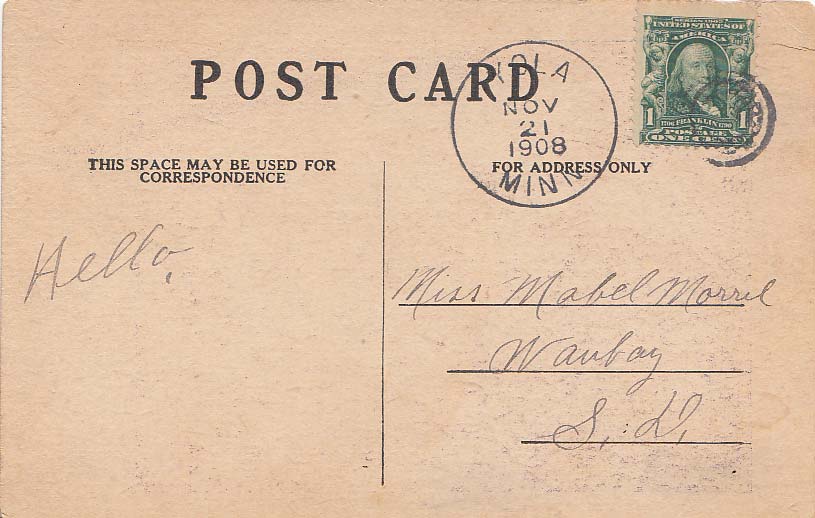 POST CARD
IOLA
NOV
21
1908
MINN
SERIES 1902
UNITED STATES OF AMERICA
1 1706 FRANKLIN 1790 1
POSTAGE
ONE CENT
THIS SPACE MAY BE USED FOR
CORRESPONDENCE
FOR ADDRESS ONLY
Hello.
Miss Mabel Morril
Waubay
S. D.